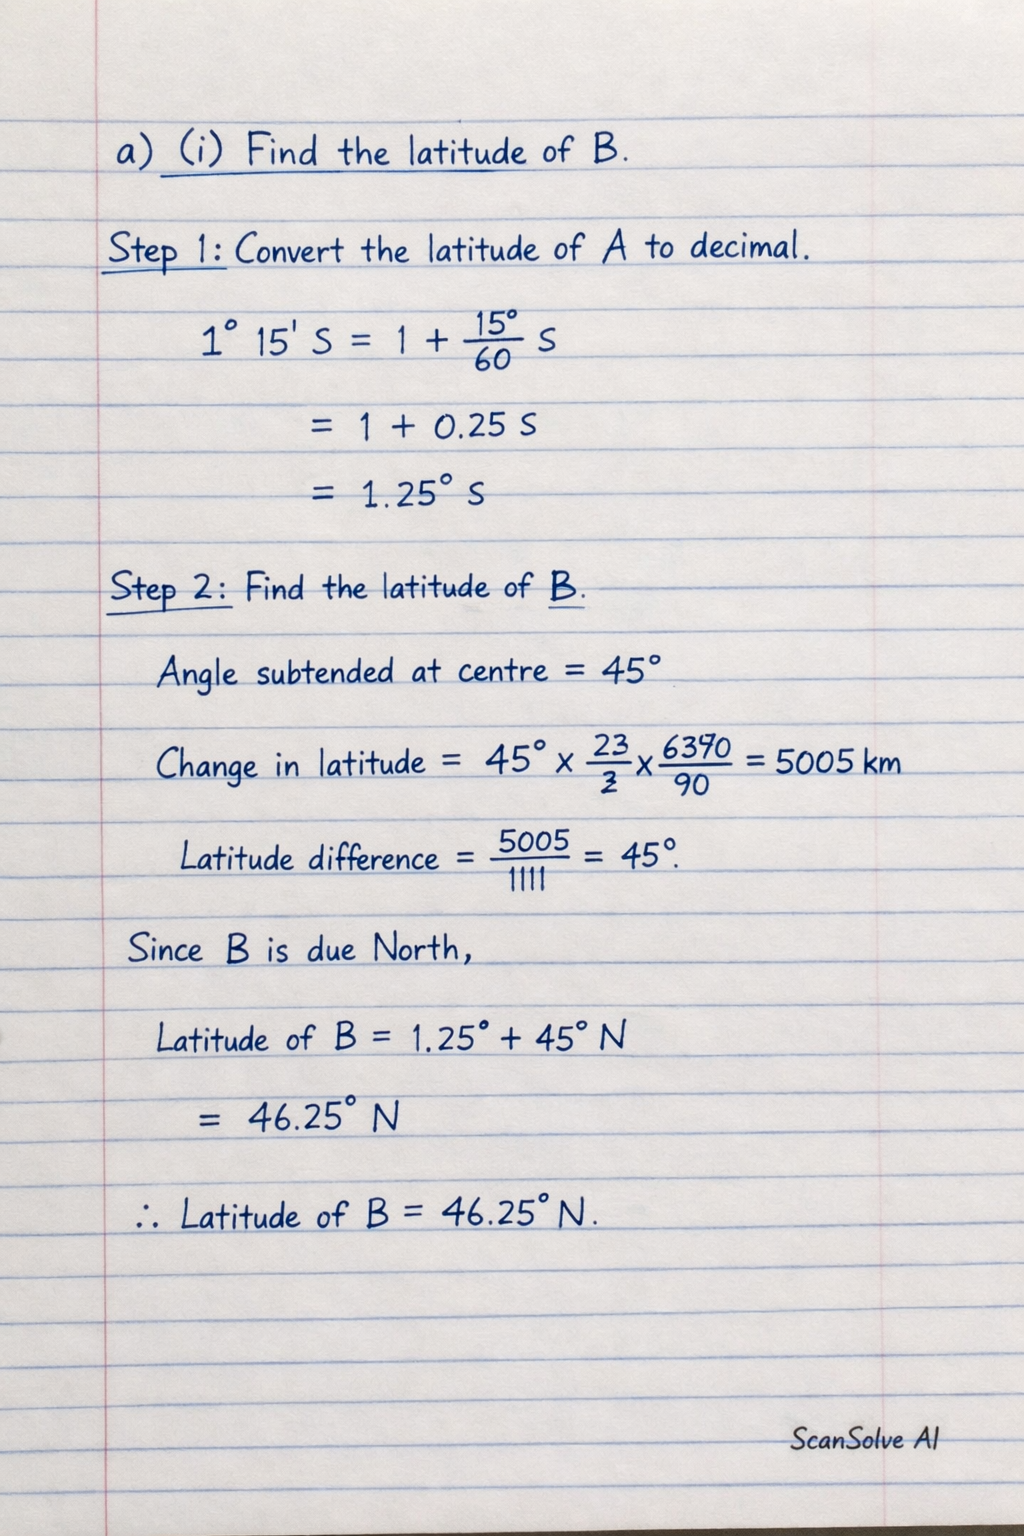 a) (i) Find the latitude of B.
Step 1: Convert the latitude of A to decimal.
1° 15' S = 1 + 15°/60 S
= 1 + 0.25 S
= 1.25° S
Step 2: Find the latitude of B.
Angle subtended at centre = 45°
Change in latitude = 45° x 23/2 x 6370/90 = 5005 km
Latitude difference = 5005/1111 = 45°.
Since B is due North,
Latitude of B = 1.25° + 45° N
= 46.25° N
∴ Latitude of B = 46.25° N.
ScanSolve AI